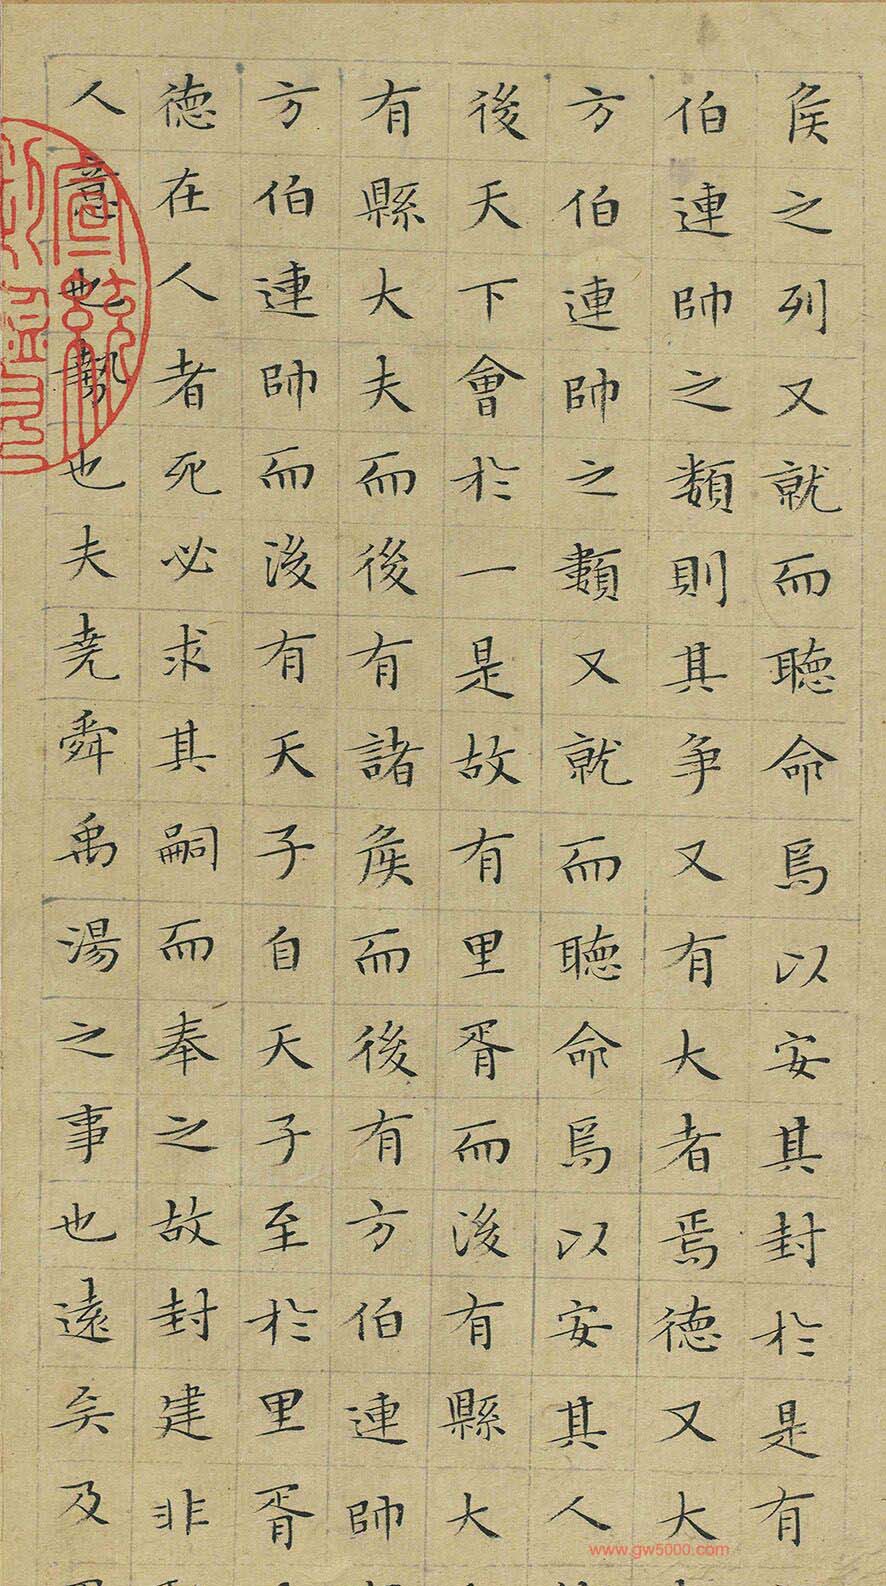 侯之列又就而聽命焉以安其封於是有
伯連帥之類則其爭又有大者焉德又大
方伯連帥之類又就而聽命焉以安其人
後天下會於一是故有里胥而後有縣大
有縣大夫而後有諸侯而後有方伯連帥
方伯連帥而後有天子自天子至於里胥
德在人者死必求其嗣而奉之故封建非
人意也勢也夫堯舜禹湯之事也遠矣及
www.gw5000.com